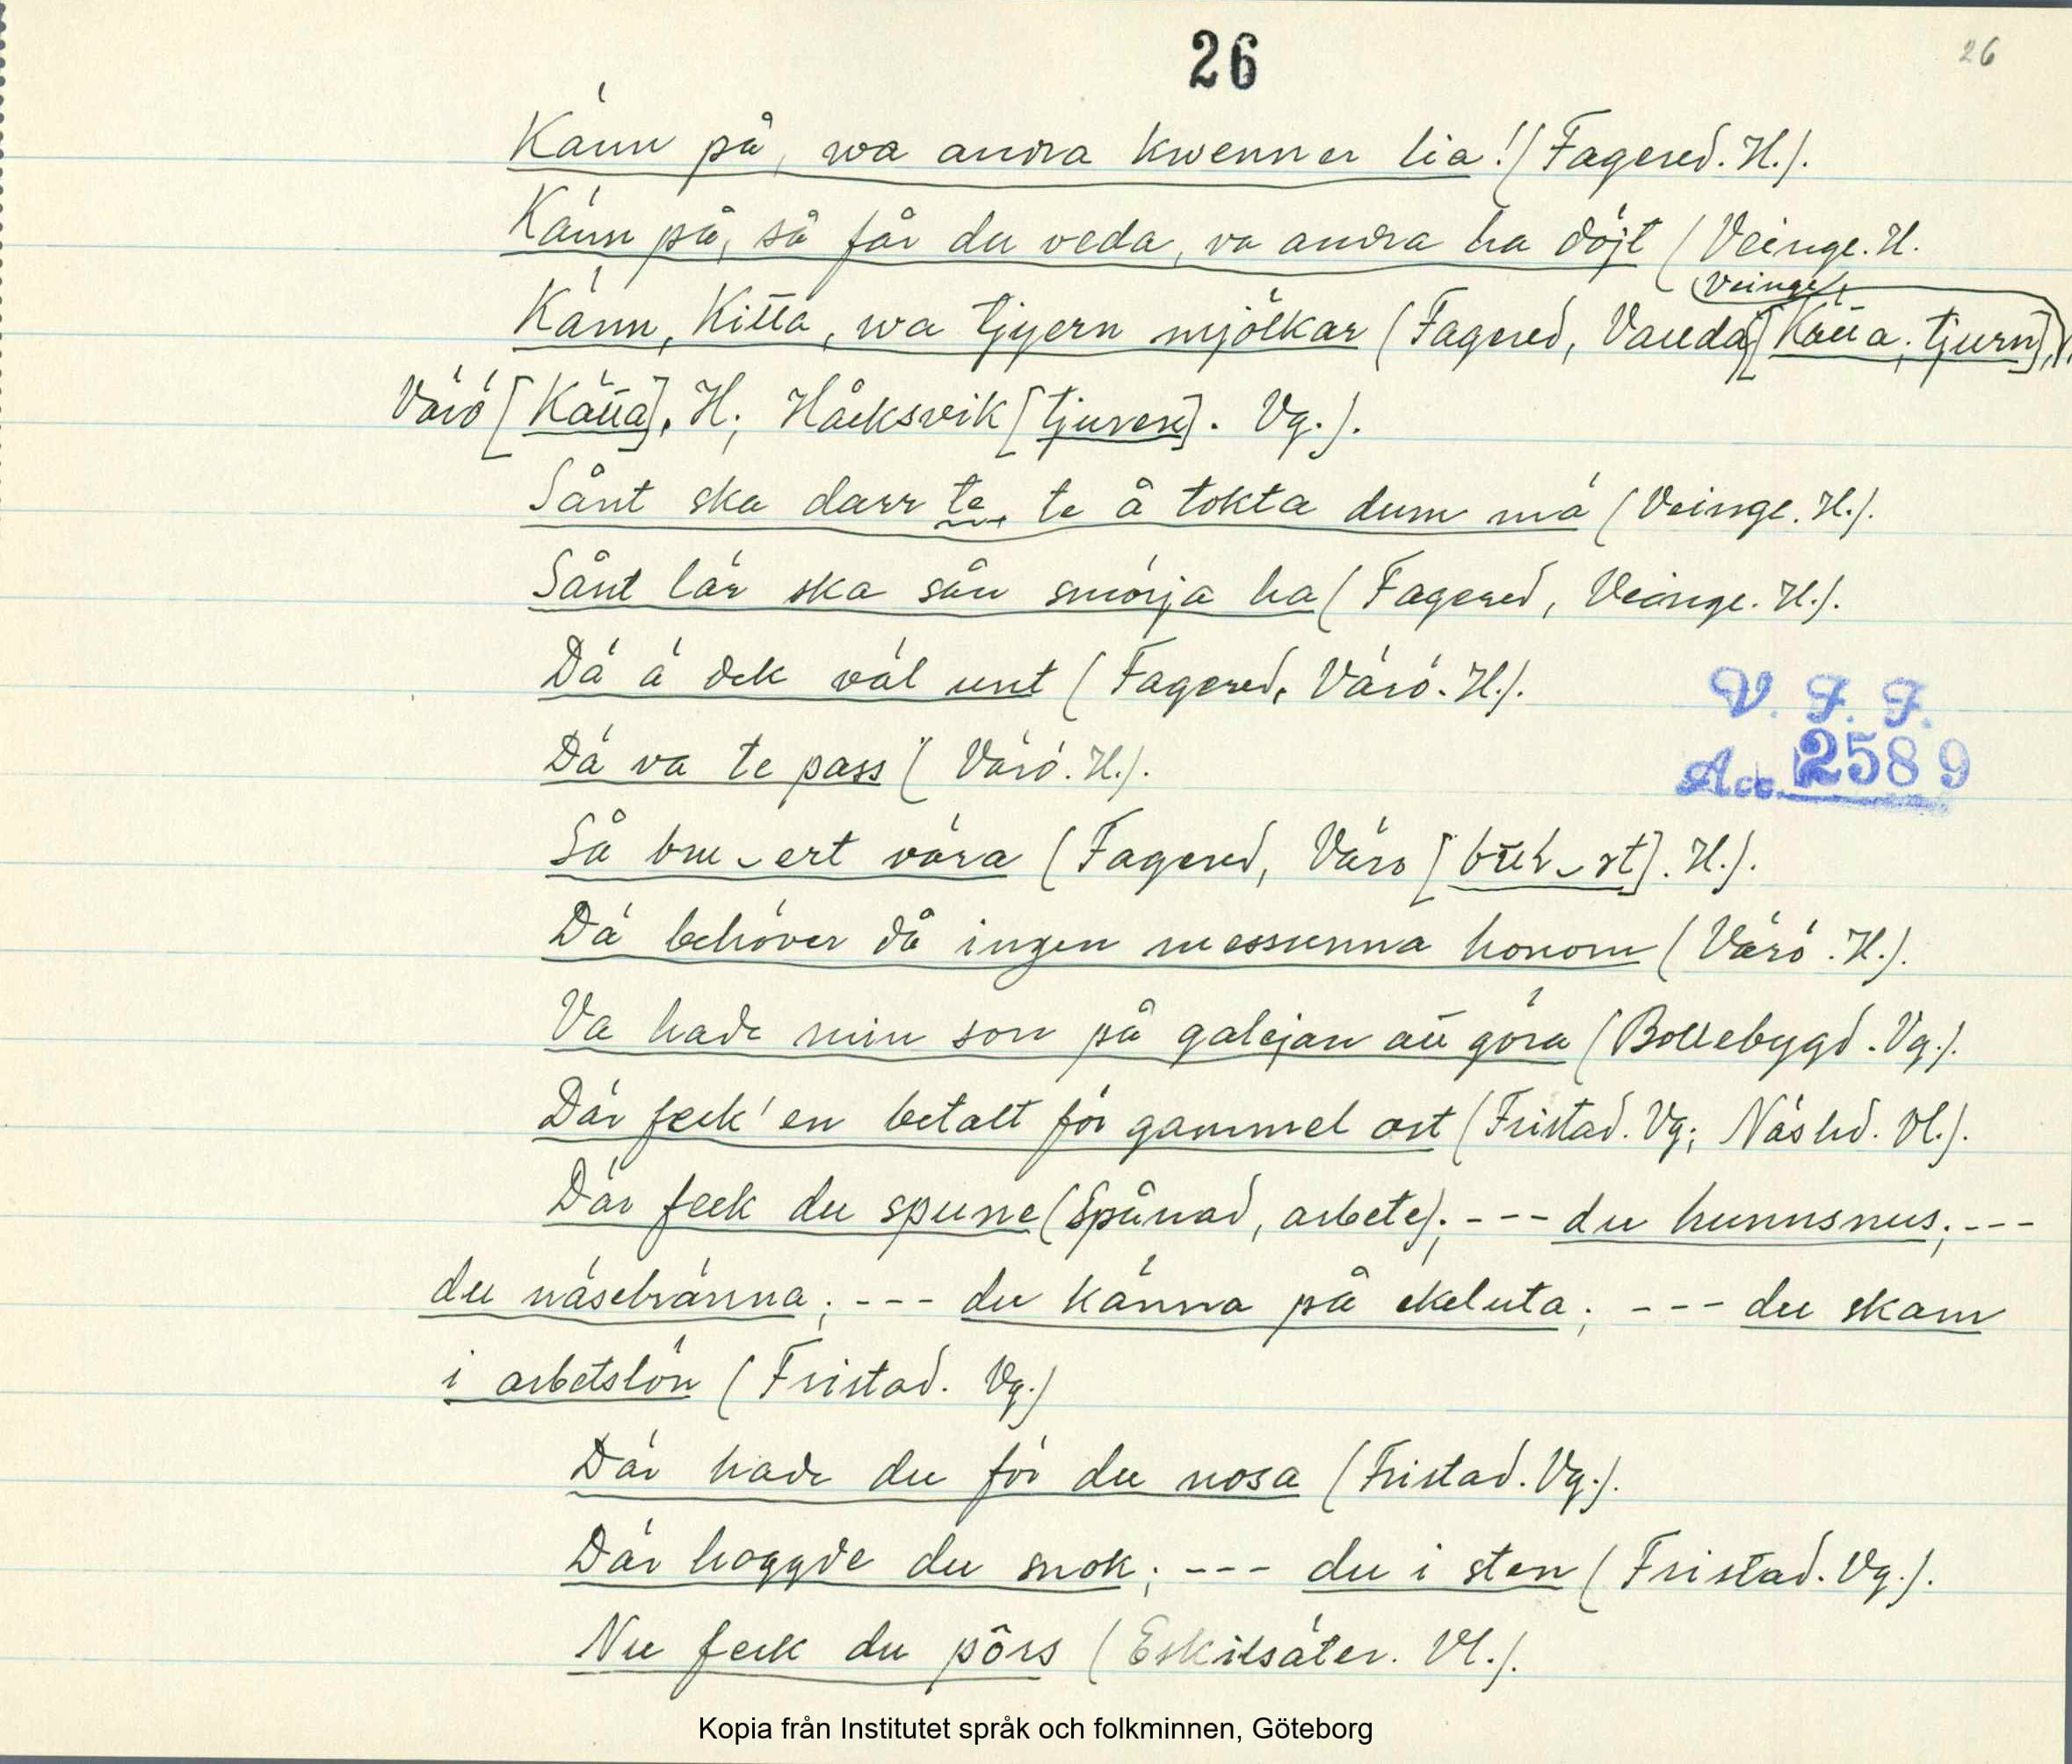 26
26
Känn på, wa andra kwenner lia! (Fagered. H.).
Känn på, så får du veda, va andra ha döjt (Veinge. H.
Veinge
Känn, Kitta, wa tjyern mjölkar (Fagered, Vanda [Kätta, tjurn],
Värö [Kätta], H; Håcksvik [tjuren]. Vg.).
Sånt ska darr te, te å tokta dum mä (Veinge. H.).
Sånt lär ska sån smörja ha (Fagered, Veinge. H.).
Dä ä dek väl unt (Fagered, Värö. H.).
Dä va te pass (Värö. H.).
V. F. F.
Acc. 2589
Så bru ert vära (Fagered, Värö [ rt]. H.).
Dä behöver då ingen messunna honom (Värö. H.).
Va hade min son på galejan att göra (Bollebygd. Vg.).
Där feck'en betalt för gammel ost (Fristad. Vg; Näshd. Vl.).
Där feck du spune (Spånad, arbete); --- du hunnsnus; ---
du näsebränna; --- du känna på ekeluta; --- du skam
i arbetslön (Fristad. Vg.)
Där hade du för du nosa (Fristad. Vg.).
Där hoggde du snok; --- du i sten (Fristad. Vg.).
Nu feck du pôrs (Eskilsäter. Vl.).
Kopia från Institutet språk och folkminnen, Göteborg